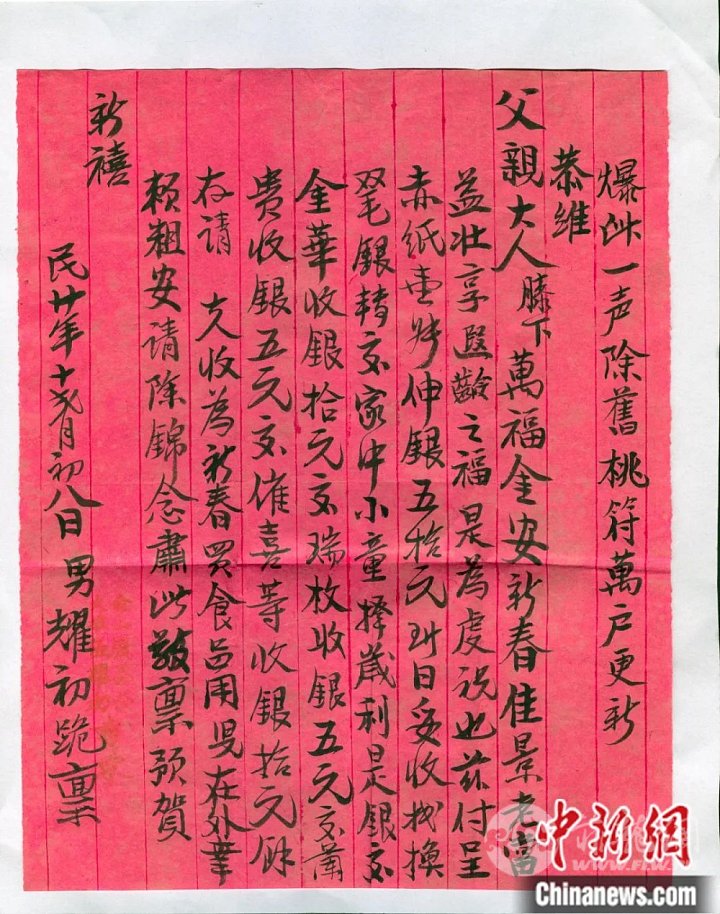 爆竹一声除舊桃符萬户更新
恭维
父親大人膝下萬福金安新春佳景老當
益壯享遐齡之福是為虔祝也兹付呈
赤紙壹封伸銀五拾元到日妥收找換
双毛銀轉交家中小童擇歲利是銀交
金華收銀拾元交瑞枚收銀五元交蘭
贵收銀五元交催喜等收銀拾元餘
存請 大人收為新春買食品用兒在外幸
賴粗安請除錦念肅此敬禀預賀
新禧
民廿年十弍月初八日 男耀初跪禀
中新網
Chinanews.com